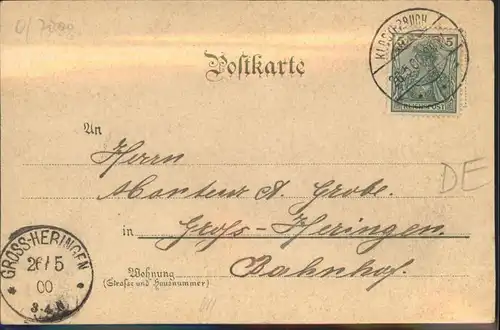 0/7000
KLOSTERBUCH
5
REICHSPOST
Postkarte
An
Herrn
Monteur A. Grobe.
in Groß-Heringen
Bahnhof.
Wohnung
(Strasse und Hausnummer)
GROSS-HERINGEN
26/5
00
DE